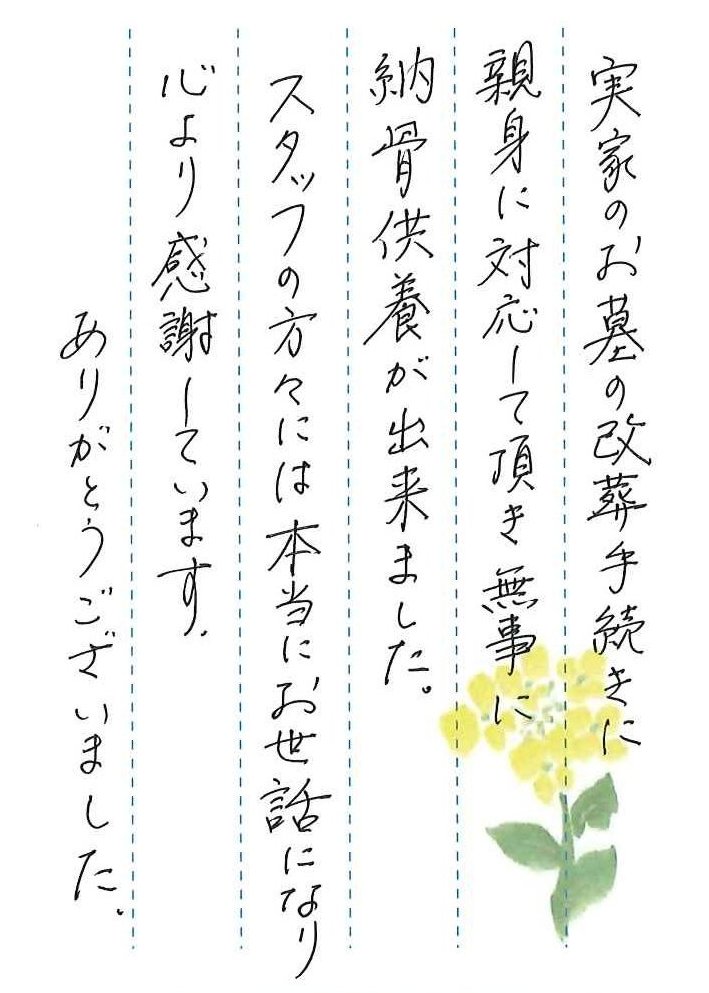 実家のお墓の改葬手続きに
親身に対応して頂き無事に
納骨供養が出来ました。
スタッフの方々には本当にお世話になり
心より感謝しています。
ありがとうございました。